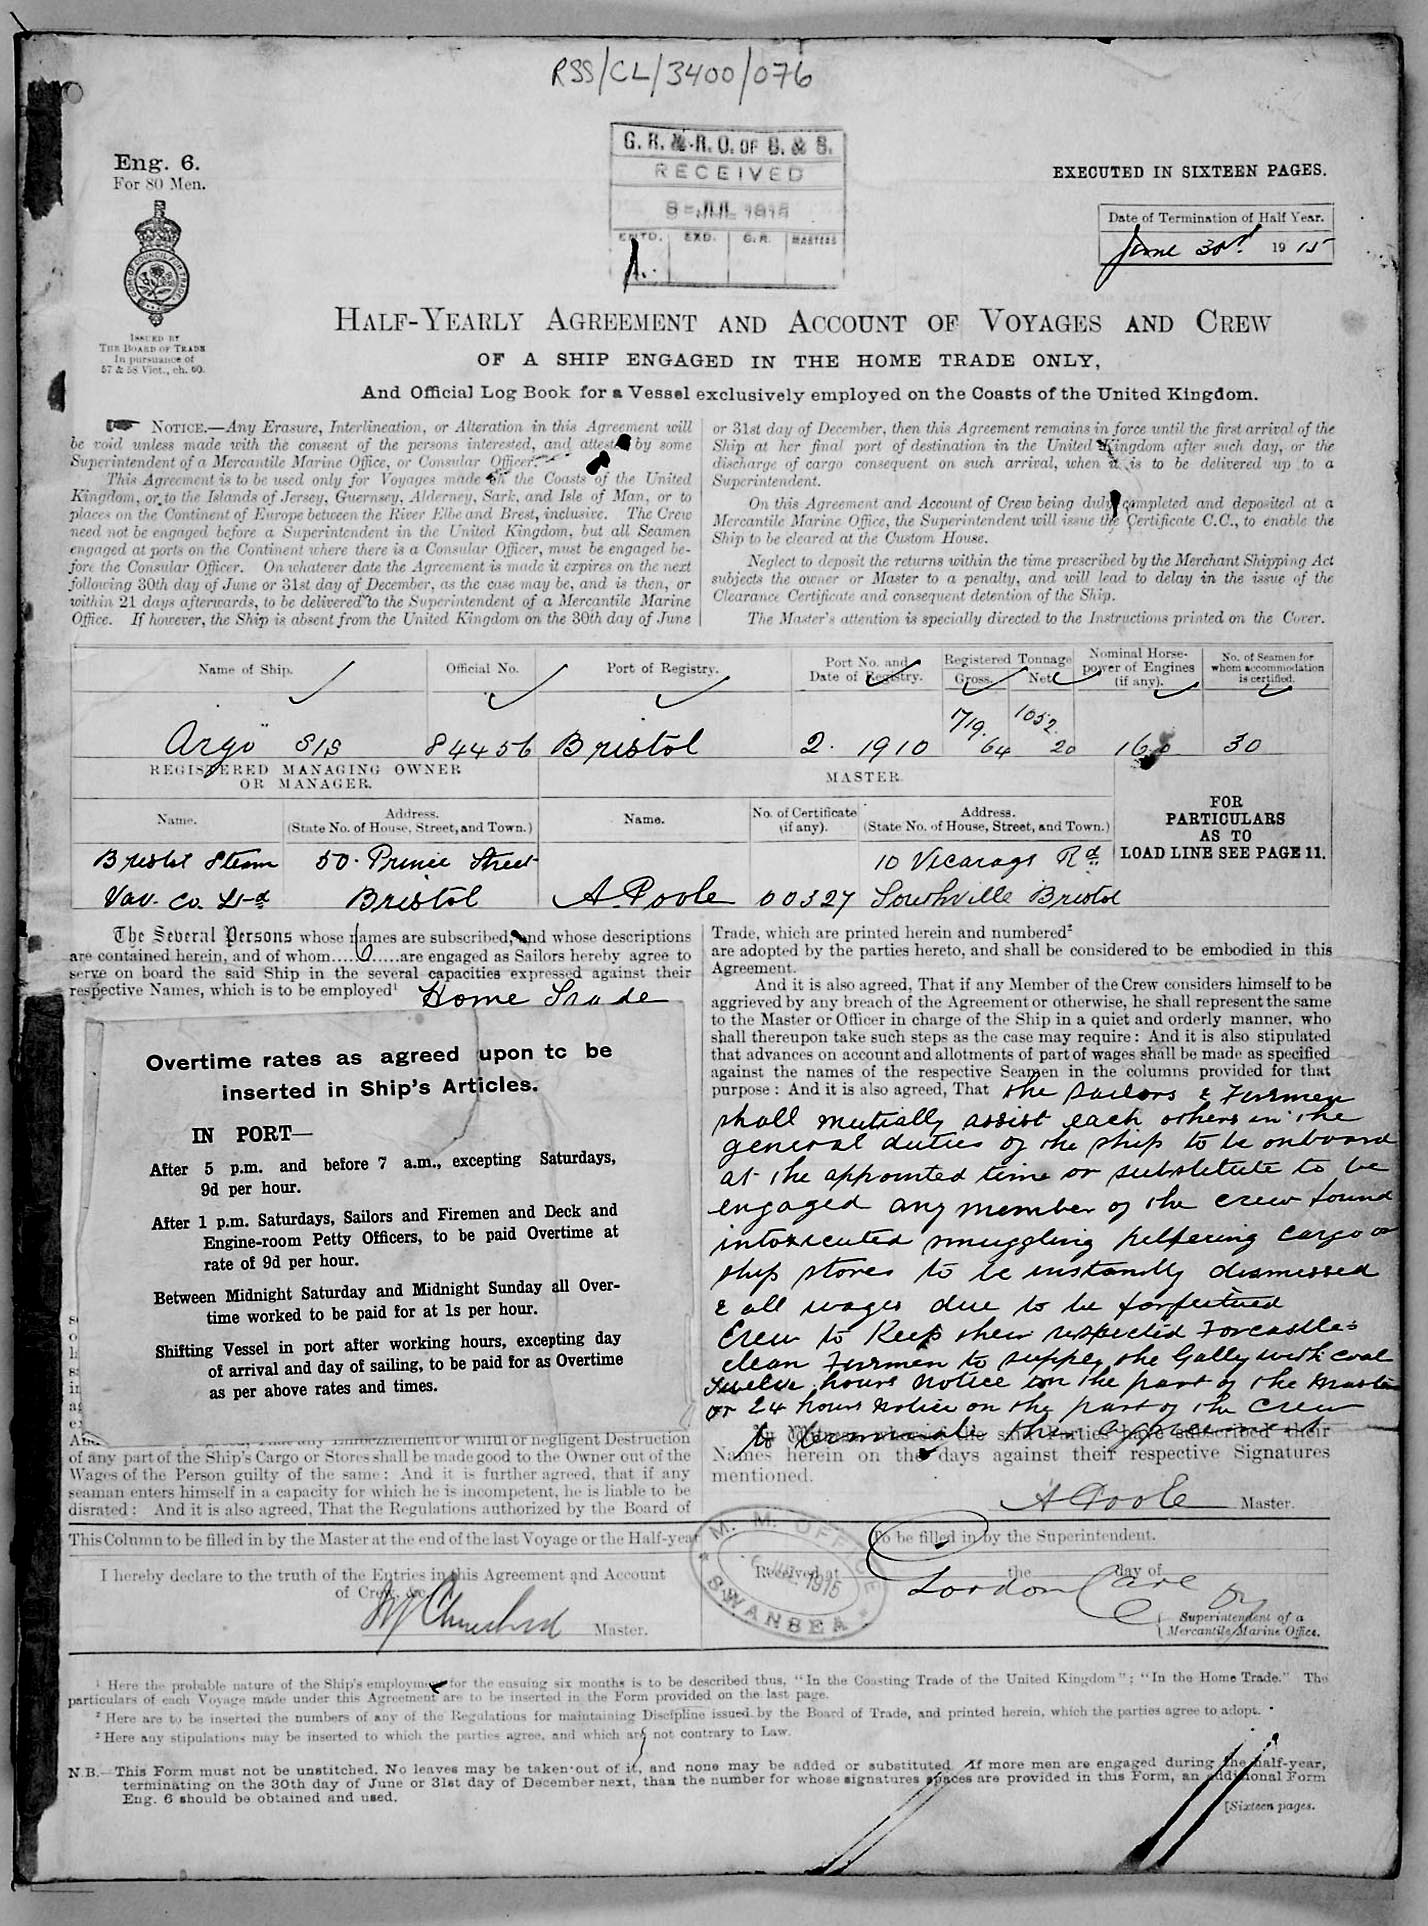 RSS/CL/3400/076
G. R. & R. O. OF S. & S.
RECEIVED
9 - JUL 1915
ENTD. EXD. G.R. MASTERS
Eng. 6.
For 80 Men.
ISSUED BY
THE BOARD OF TRADE
In pursuance of
57 & 58 Vict., ch. 60.
EXECUTED IN SIXTEEN PAGES.
Date of Termination of Half Year.
June 30th 1915
HALF-YEARLY AGREEMENT AND ACCOUNT OF VOYAGES AND CREW
OF A SHIP ENGAGED IN THE HOME TRADE ONLY,
And Official Log Book for a Vessel exclusively employed on the Coasts of the United Kingdom.
NOTICE.—Any Erasure, Interlineation, or Alteration in this Agreement will
be void unless made with the consent of the persons interested, and attested by some
Superintendent of a Mercantile Marine Office, or Consular Officer.
This Agreement is to be used only for Voyages made on the Coasts of the United
Kingdom, or to the Islands of Jersey, Guernsey, Alderney, Sark, and Isle of Man, or to
places on the Continent of Europe between the River Elbe and Brest, inclusive. The Crew
need not be engaged before a Superintendent in the United Kingdom, but all Seamen
engaged at ports on the Continent where there is a Consular Officer, must be engaged be-
fore the Consular Officer. On whatever date the Agreement is made it expires on the next
following 30th day of June or 31st day of December, as the case may be, and is then, or
within 21 days afterwards, to be delivered to the Superintendent of a Mercantile Marine
Office. If however, the Ship is absent from the United Kingdom on the 30th day of June
or 31st day of December, then this Agreement remains in force until the first arrival of the
Ship at her final port of destination in the United Kingdom after such day, or the
discharge of cargo consequent on such arrival, when it is to be delivered up to a
Superintendent.
On this Agreement and Account of Crew being duly completed and deposited at a
Mercantile Marine Office, the Superintendent will issue the Certificate C.C., to enable the
Ship to be cleared at the Custom House.
Neglect to deposit the returns within the time prescribed by the Merchant Shipping Act
subjects the owner or Master to a penalty, and will lead to delay in the issue of the
Clearance Certificate and consequent detention of the Ship.
The Master's attention is specially directed to the Instructions printed on the Cover.
Name of Ship. Official No. Port of Registry. Port No. and Date of Registry. Registered Tonnage Gross. Net. Nominal Horse-power of Engines (if any). No. of Seamen for whom accommodation is certified.
Argo S/S 84456 Bristol 2. 1910 1719.64 1052.20 160 30
REGISTERED MANAGING OWNER
OR MANAGER.
MASTER.
Name. Address. (State No. of House, Street, and Town.) Name. No. of Certificate (if any). Address. (State No. of House, Street, and Town.)
FOR
PARTICULARS
AS TO
LOAD LINE SEE PAGE 11.
Bristol Steam 50. Prince Street 10 Vicarage Rd
Nav. Co. Ltd Bristol A. Poole 00327 Southville Bristol
The Several Persons whose names are subscribed, and whose descriptions
are contained herein, and of whom.....6.....are engaged as Sailors hereby agree to
serve on board the said Ship in the several capacities expressed against their
respective Names, which is to be employed¹ Home Trade
Overtime rates as agreed upon to be
inserted in Ship's Articles.
IN PORT—
After 5 p.m. and before 7 a.m., excepting Saturdays,
9d per hour.
After 1 p.m. Saturdays, Sailors and Firemen and Deck and
Engine-room Petty Officers, to be paid Overtime at
rate of 9d per hour.
Between Midnight Saturday and Midnight Sunday all Over-
time worked to be paid for at 1s per hour.
Shifting Vessel in port after working hours, excepting day
of arrival and day of sailing, to be paid for as Overtime
as per above rates and times.
And that any Embezzlement or wilful or negligent Destruction
of any part of the Ship's Cargo or Stores shall be made good to the Owner out of the
Wages of the Person guilty of the same: And it is further agreed, that if any
seaman enters himself in a capacity for which he is incompetent, he is liable to be
disrated: And it is also agreed, That the Regulations authorized by the Board of
Trade, which are printed herein and numbered²
are adopted by the parties hereto, and shall be considered to be embodied in this
Agreement.
And it is also agreed, That if any Member of the Crew considers himself to be
aggrieved by any breach of the Agreement or otherwise, he shall represent the same
to the Master or Officer in charge of the Ship in a quiet and orderly manner, who
shall thereupon take such steps as the case may require: And it is also stipulated
that advances on account and allotments of part of wages shall be made as specified
against the names of the respective Seamen in the columns provided for that
purpose: And it is also agreed, That the sailors & Firemen
shall mutually assist each others in the
general duties of the ship to be onboard
at the appointed time or substitute to be
engaged any member of the crew found
intoxicated smuggling pilfering cargo or
ship stores to be instantly dismissed
& all wages due to be forfeitued
Crew to Keep their respected Forcastles
clean Firemen to supply the Gally with coal
Twelve hours notice on the part of the Master
or 24 hours notice on the part of the crew
to terminate this agreement
In Witness whereof the said Parties have subscribed their
Names herein on the days against their respective Signatures
mentioned.
A Poole Master.
This Column to be filled in by the Master at the end of the last Voyage or the Half-year
To be filled in by the Superintendent.
I hereby declare to the truth of the Entries in this Agreement and Account
of Crew, &c.
Master.
M. M. OFFICE
6 JUL 1915
SWANSEA
Received at the day of
Superintendent of a
Mercantile Marine Office.
¹ Here the probable nature of the Ship's employment for the ensuing six months is to be described thus, "In the Coasting Trade of the United Kingdom"; "In the Home Trade." The
particulars of each Voyage made under this Agreement are to be inserted in the Form provided on the last page.
² Here are to be inserted the numbers of any of the Regulations for maintaining Discipline issued by the Board of Trade, and printed herein, which the parties agree to adopt.
³ Here any stipulations may be inserted to which the parties agree, and which are not contrary to Law.
N.B.—This Form must not be unstitched. No leaves may be taken out of it, and none may be added or substituted. If more men are engaged during the half-year,
terminating on the 30th day of June or 31st day of December next, than the number for whose signatures spaces are provided in this Form, an additional Form
Eng. 6 should be obtained and used.
[Sixteen pages.